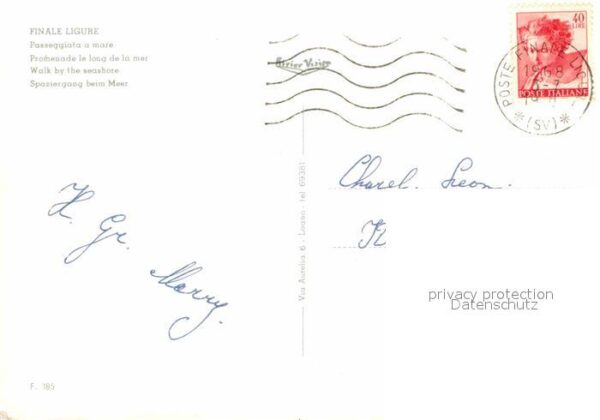 FINALE LIGURE
Passeggiata a mare
Promenade le long de la mer
Walk by the seashore
Spaziergang beim Meer
40
LIRE
POSTE ITALIANE
POSTE FINALE LIGURE
* (SV) *
Via Aurelia 6 - Loano - tel 69381
H. Gr. Marry.
privacy protection
Datenschutz
F. 185